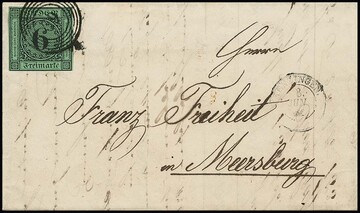 6
Freimarke
Herrn
Franz Freiheit,
in Meersburg